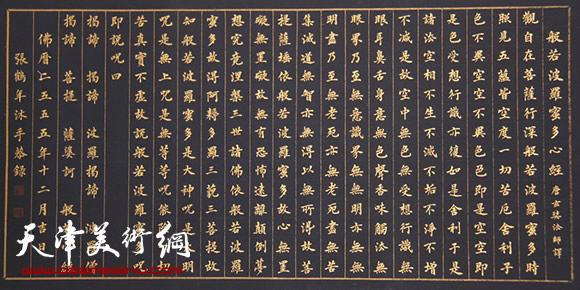 般若波羅蜜多心經 唐玄奘法師譯
觀自在菩薩行深般若波羅蜜多時
照見五蘊皆空度一切苦厄舍利子
色不異空空不異色色即是空空即
是色受想行識亦復如是舍利子是
諸法空相不生不滅不垢不淨不增
不減是故空中無色無受想行識無
眼耳鼻舌身意無色聲香味觸法無
眼界乃至無意識界無無明亦無無
明盡乃至無老死亦無老死盡無苦
集滅道無智亦無得以無所得故菩
提薩埵依般若波羅蜜多故心無罣
礙無罣礙故無有恐怖遠離顛倒夢
想究竟涅槃三世諸佛依般若波羅
蜜多故得阿耨多羅三藐三菩提故
知般若波羅蜜多是大神呪是大明
呪是無上呪是無等等呪能除一切
苦真實不虛故說般若波羅蜜多呪
即說呪曰
揭諦 揭諦 波羅揭諦 波羅僧
揭諦 菩提 薩婆訶 般
佛曆二五五五年十二月吉日
張鶴年沐手恭錄
天津美術網